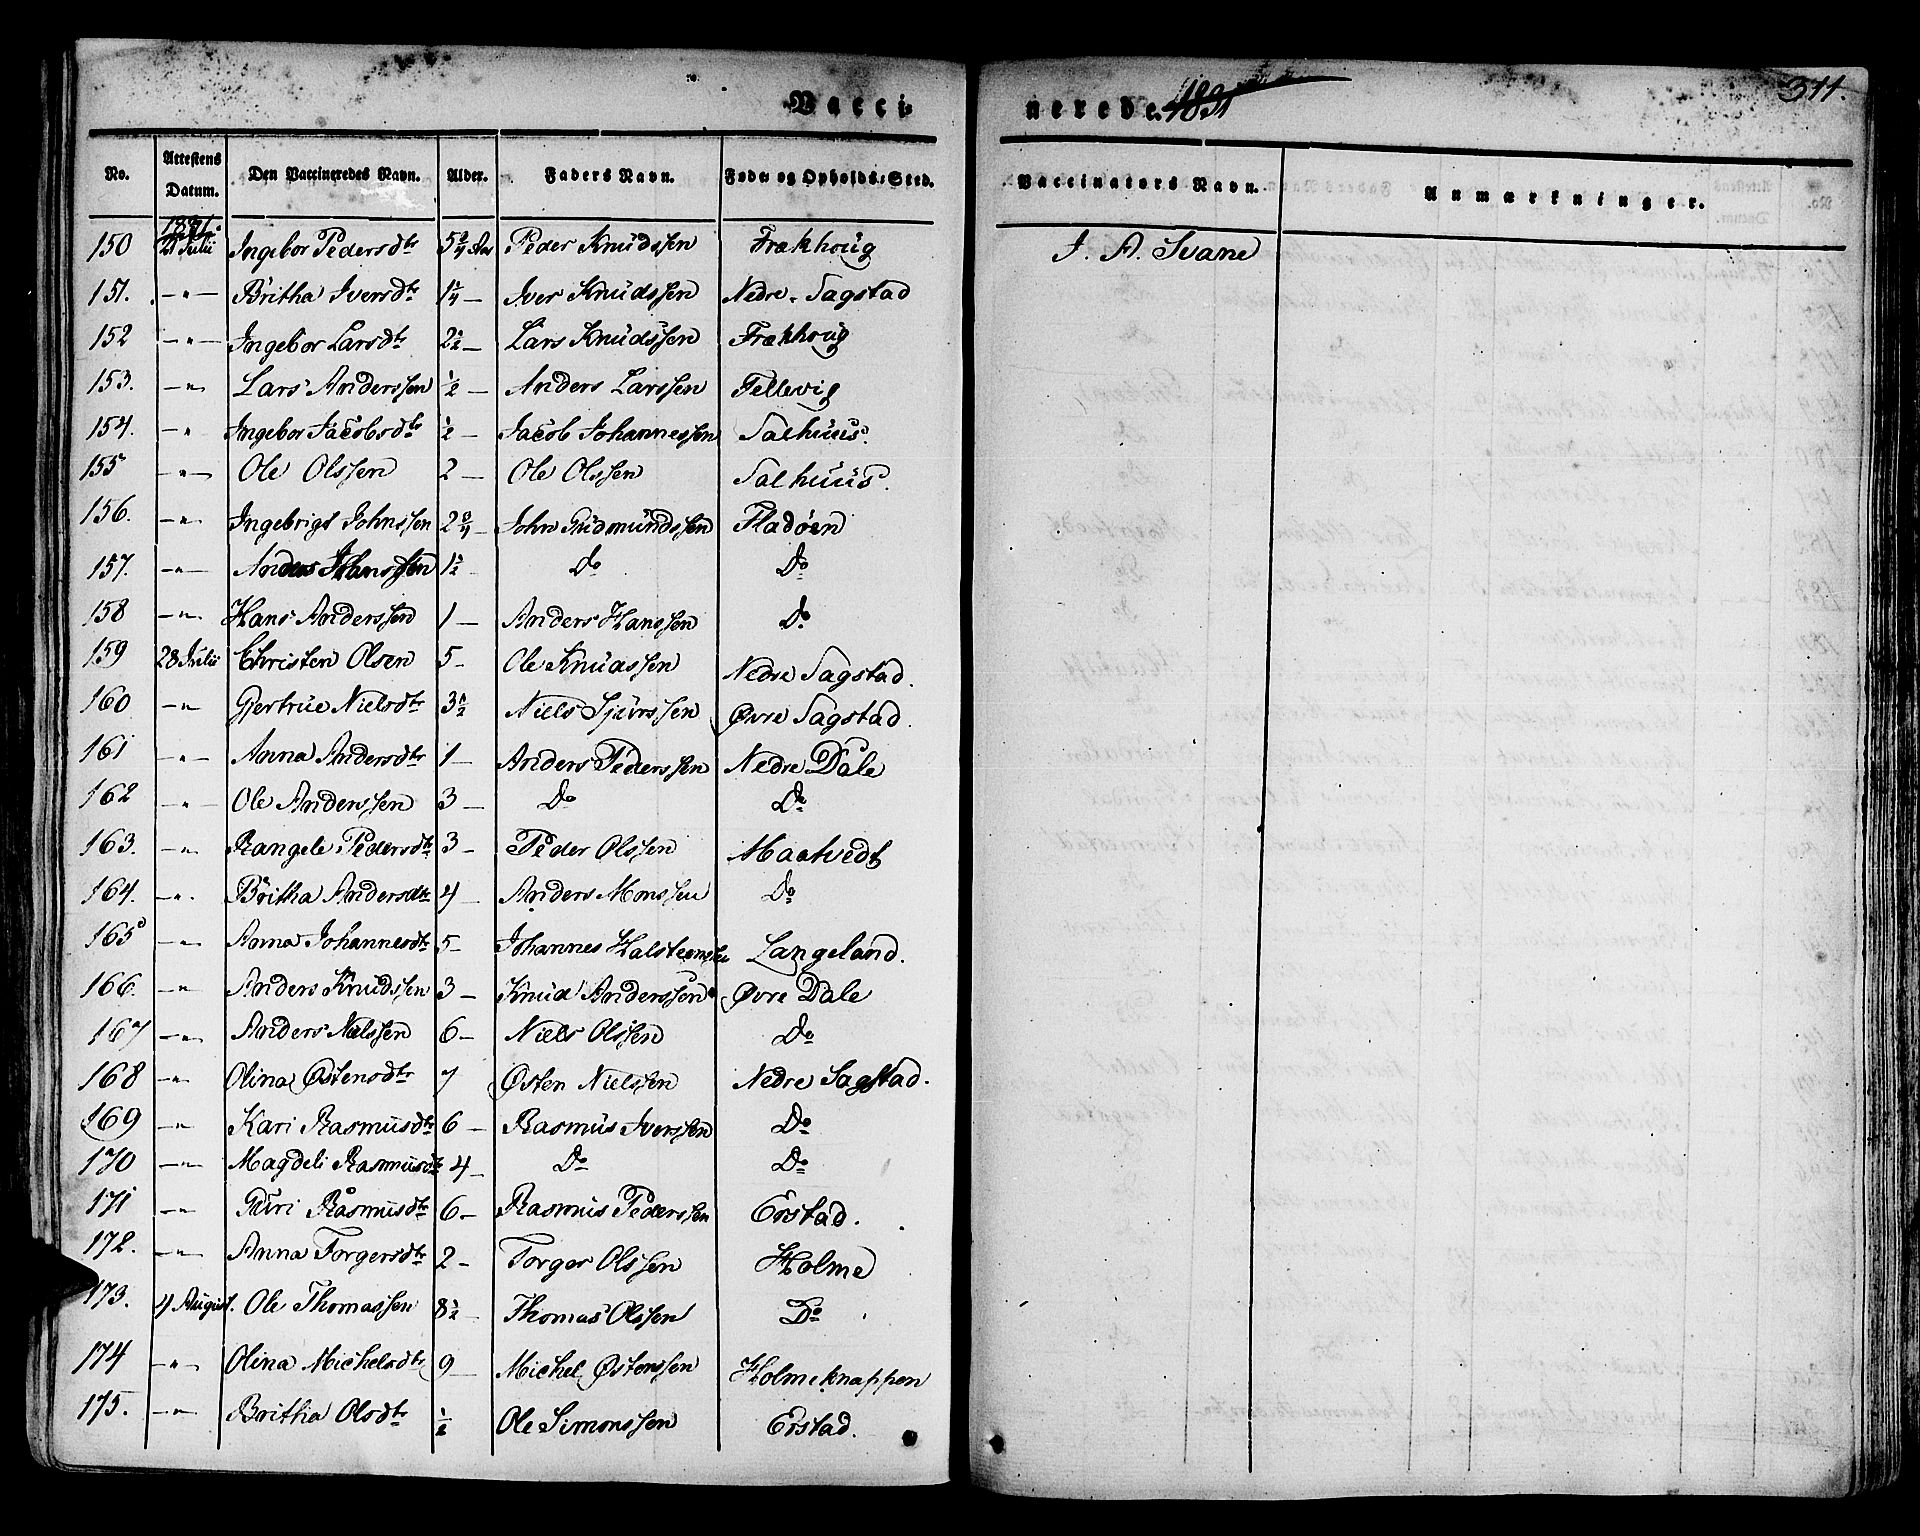 Vacci-
nerede. 1831
311.
No. Attestens Datum. Den Vaccineredes Navn. Alder. Faders Navn. Føde og Opholds-Sted. Vaccinators Navn. Anmærkninger.
1831.
150 21 Julii Ingebor Pedersdtr 5 3/4 Aar Peder Knudssen Frækhoug J. A. Svane
151. -"- Britha Iversdtr 1 1/4 - Iver Knudssen Nedre Sagstad
152 -"- Ingebor Larsdtr 2 1/2 - Lars Knudssen Frækhoug
153. -"- Lars Anderssen 1/2 - Anders Larssen Fellevig
154. -"- Ingebor Jacobsdtr 1/2 - Jacob Johannessen Salhuus.
155 -"- Ole Olssen 2 - Ole Olssen Salhuus.
156. -"- Ingebrigt Johnssen 2 3/4 - John Gudmundssen Fladøen
157. -"- Anders Johanssen 1 1/2 - Do Do
158 -"- Hans Anderssen 1 - Anders Hanssen Do
159 28 Julii Christen Olsen 5 - Ole Knudssen Nedre Sagstad.
160 -"- Gjertrue Nielsdtr 3 1/2 Niels Sjurssen Øvre Sagstad.
161 -"- Anna Andersdtr 1 - Anders Pederssen Nedre Dale
162 -"- Ole Anderssen 3 - Do Do
163. -"- Rangele Pedersdtr 3 - Peder Olssen Maatvedt
164. -"- Britha Andersdtr 4 Anders Monssen Do
165 -"- Anna Johannesdtr 5 - Johannes Halsteenssen Langeland.
166. -"- Anders Knudssen 3 - Knud Anderssen Øvre Dale
167 -"- Anders Nielssen 6 - Niels Olssen Do
168 -"- Olina Østensdtr 7 Østen Nielssen Nedre Sagstad.
169 -"- Kari Rasmusdtr 6 - Rasmus Iverssen Do
170 -"- Magdeli Rasmusdtr 4 - Do Do
171 -"- Guri Rasmusdtr 6 - Rasmus Pederssen Erstad.
172. -"- Anna Torgersdtr 2 - Torger Olssen Holme
173. 4 August. Ole Thomassen 8 1/2 - Thomas Olssen Do
174 -"- Olina Michelsdtr 9 - Michel Østenssen Holmeknappen
175. -"- Britha Olsdtr 1/2 Ole Simonssen Erstad.